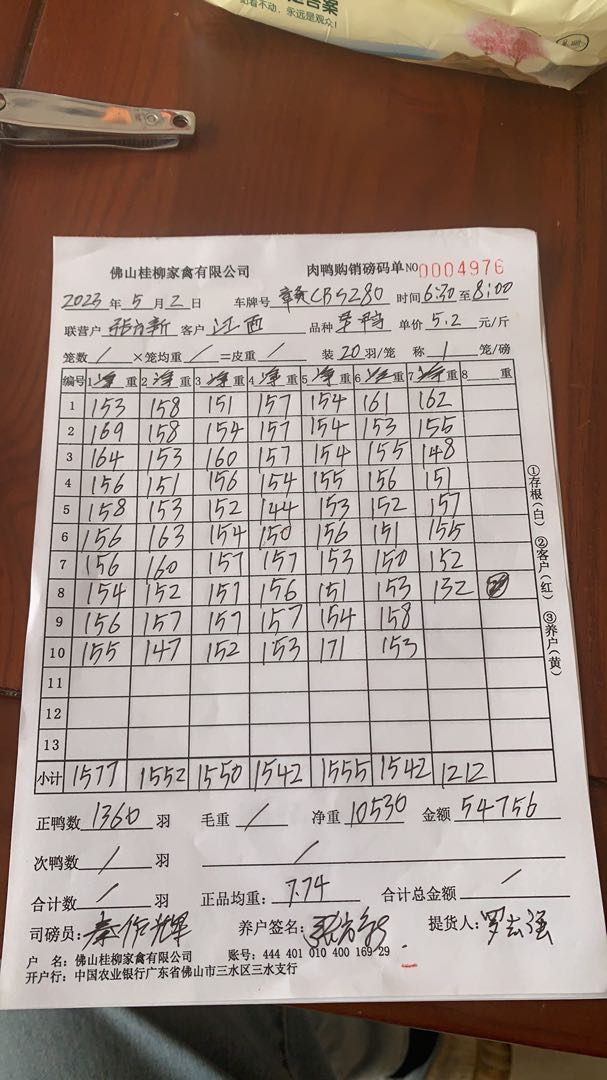 记着不动、永远是观众！
佛山桂柳家禽有限公司 肉鸭购销磅码单 NO 0004976
2023 年 5 月 2 日 车牌号 CBS280 时间 6:30 至 8:00
联营户 客户 江西 品种 单价 5.2 元/斤
笼数 / ×笼均重 / =皮重 / 装 20 羽/笼 称 1 笼/磅
编号 1 净 重 2 净 重 3 净 重 4 净 重 5 净 重 6 净 重 7 净 重 8 重
1 153 158 151 157 154 161 162
2 169 158 154 157 154 153 155
3 164 153 160 157 154 155 148
4 156 151 156 154 155 156 151
5 158 153 152 144 153 152 157
6 156 163 154 150 156 151 155
7 156 160 157 157 153 150 152
8 154 152 157 156 151 153 132
9 156 157 157 157 154 158
10 155 147 152 153 171 153
11
12
13
小计 1577 1552 1550 1542 1555 1542 1212
①存根(白) ②客户(红) ③养户(黄)
正鸭数 1360 羽 毛重 / 净重 10530 金额 54756
次鸭数 / 羽 /
合计数 / 羽 正品均重: 7.74 合计总金额 /
司磅员: 秦作辉 养户签名: 提货人: 罗云强
户 名: 佛山桂柳家禽有限公司 账号: 444 401 010 400 169 29
开户行: 中国农业银行广东省佛山市三水区三水支行